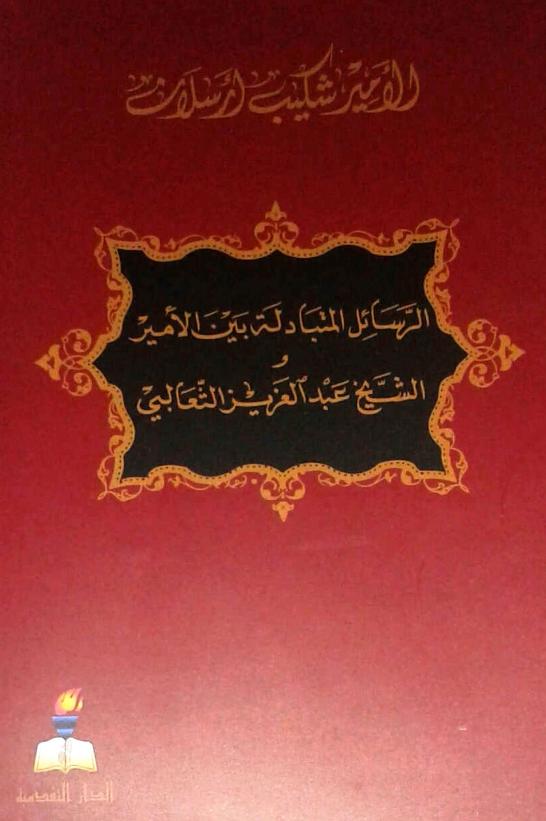 الأمير شكيب أرسلان
الرَّسَائِل المتبَادلة بَيْنَ الأمير
و
الشَّيْخ عَبْد العَزيز الثَّعَالبي
الدار التقدمية